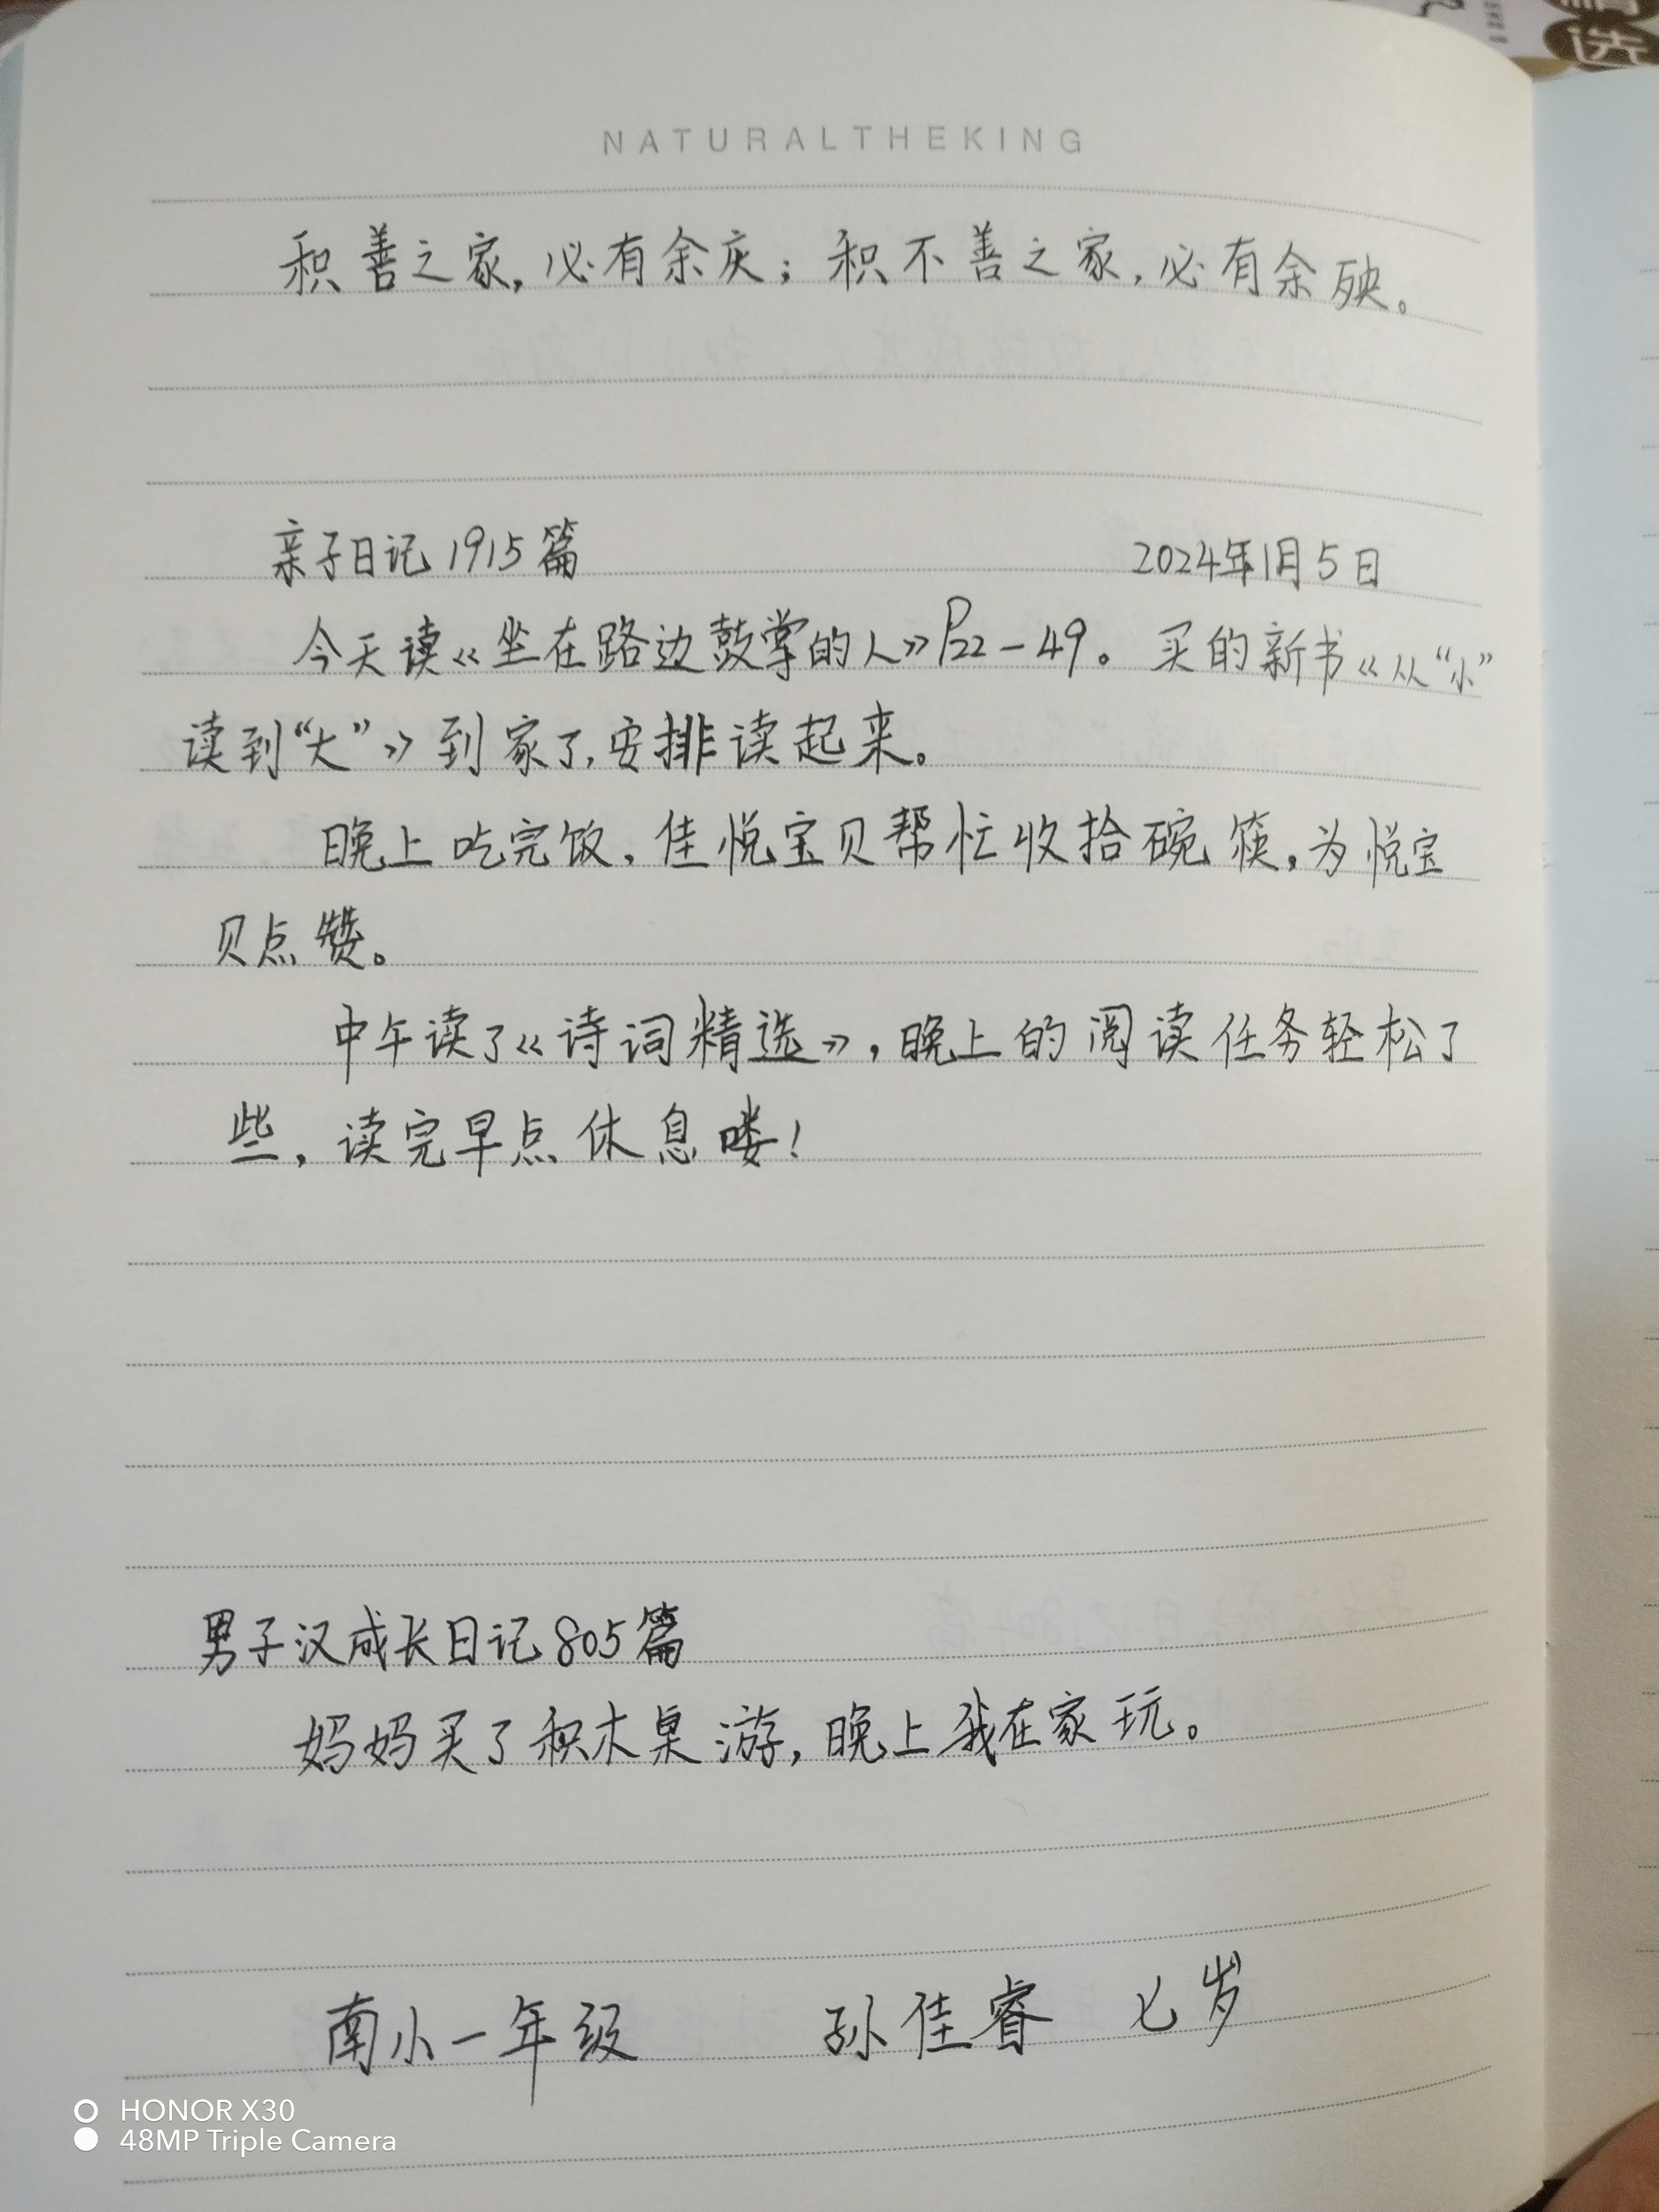 精选
NATURALTHEKING
积善之家，必有余庆；积不善之家，必有余殃。
亲子日记1915篇 2024年1月5日
今天读《坐在路边鼓掌的人》P22-49。买的新书《从“小”
读到“大”》到家了,安排读起来。
晚上吃完饭,佳悦宝贝帮忙收拾碗筷,为悦宝
贝点赞。
中午读了《诗词精选》,晚上的阅读任务轻松了
些,读完早点休息喽!
男子汉成长日记805篇
妈妈买了积木桌游,晚上我在家玩。
南小一年级 孙佳睿 七岁
HONOR X30
48MP Triple Camera